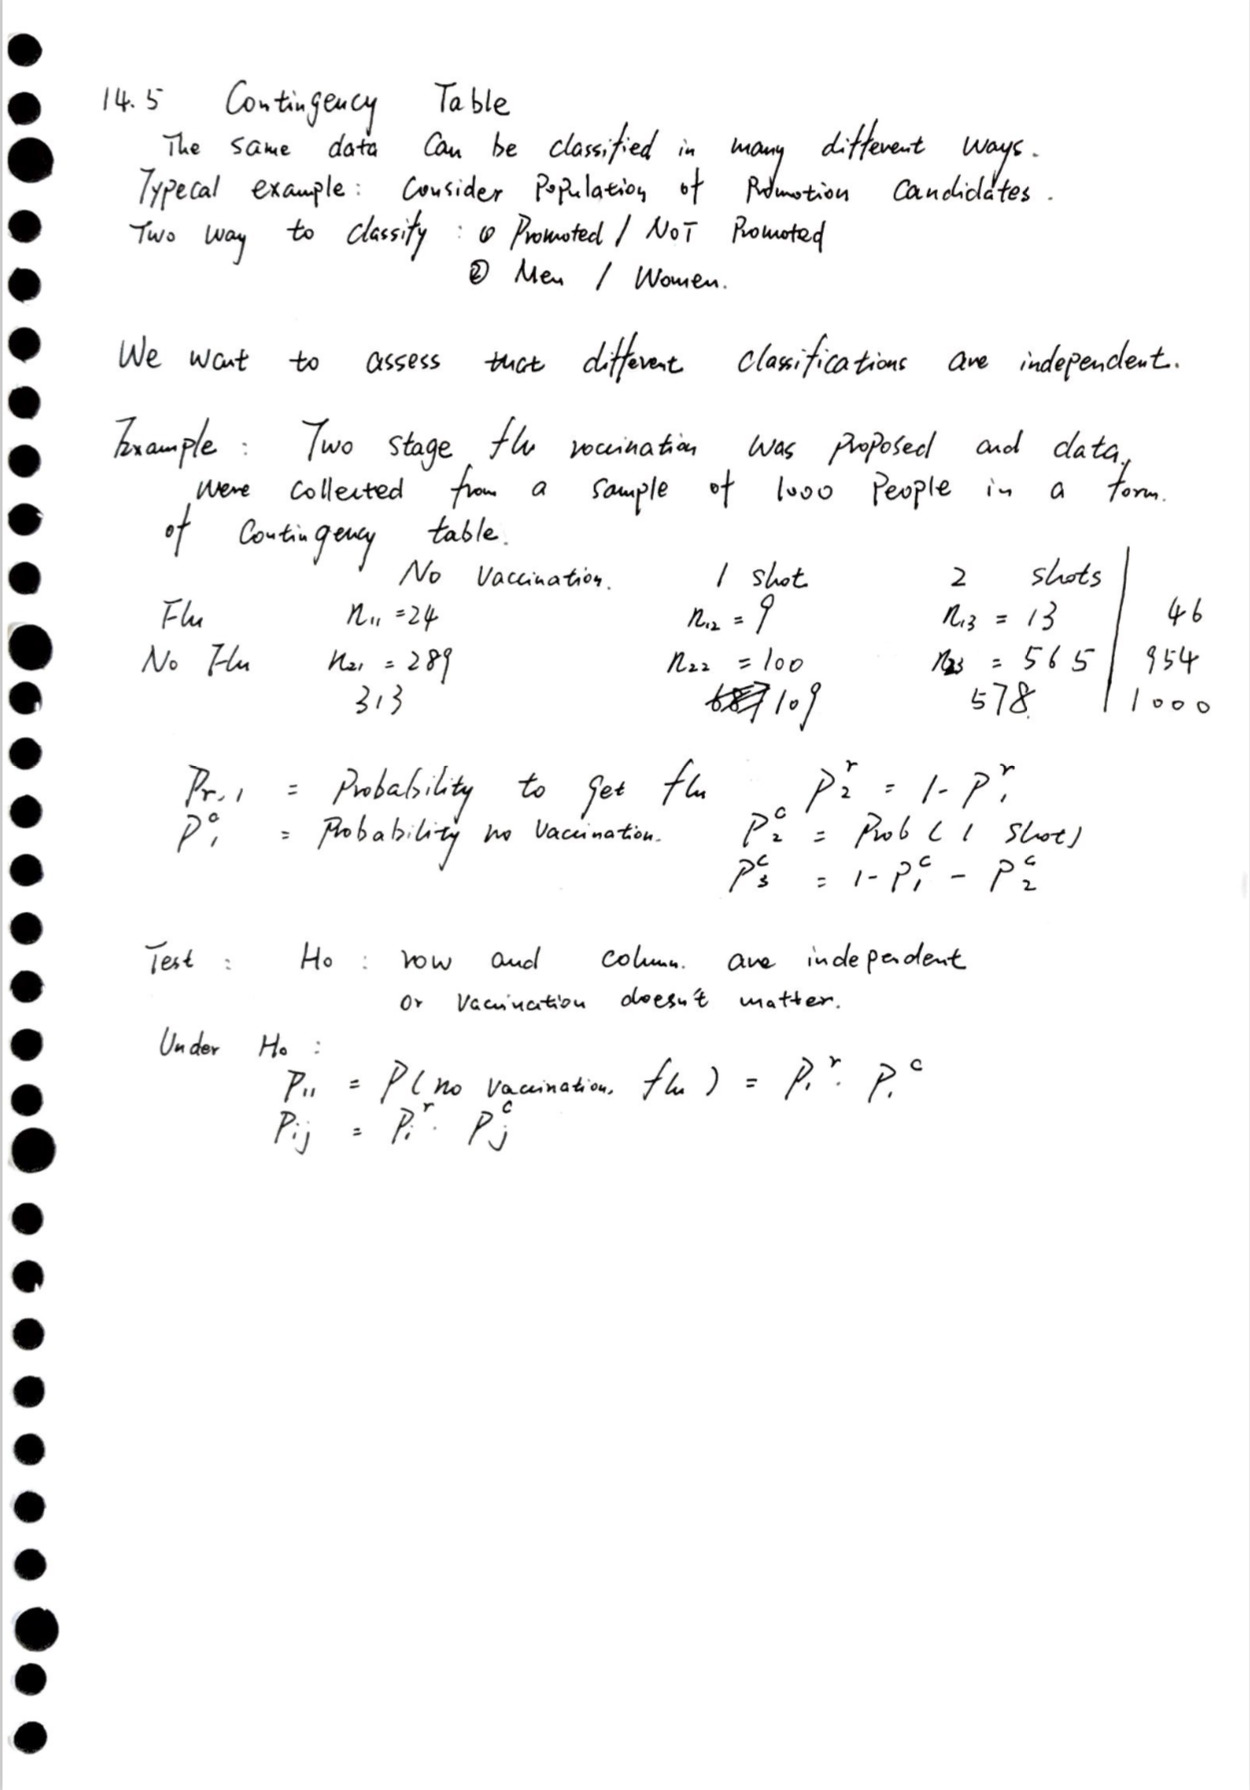 14.5 Contingency Table
The same data Can be classified in many different ways.
Typecal example: Consider Population of Promotion Candidates.
Two way to classify: ① Promoted / NOT Promoted
② Men / Women.
We want to assess that different classifications are independent.
Example: Two stage flu vaccination was proposed and data
were collected from a sample of 1000 People in a form
of Contingency table.
No Vaccination. 1 shot 2 shots
Flu n₁₁ = 24 n₁₂ = 9 n₁₃ = 13 46
No Flu n₂₁ = 289 n₂₂ = 100 n₂₃ = 565 954
313 109 578 1000
Pr.1 = Probability to get flu P₂ʳ = 1 - P₁ʳ
P₁ᶜ = Probability no Vaccination. P₂ᶜ = Prob (1 shot)
P₃ᶜ = 1 - P₁ᶜ - P₂ᶜ
Test: H₀: row and column are independent
or vaccination doesn't matter.
Under H₀:
P₁₁ = P(no vaccination, flu) = P₁ʳ · P₁ᶜ
Pᵢⱼ = Pᵢʳ · Pⱼᶜ